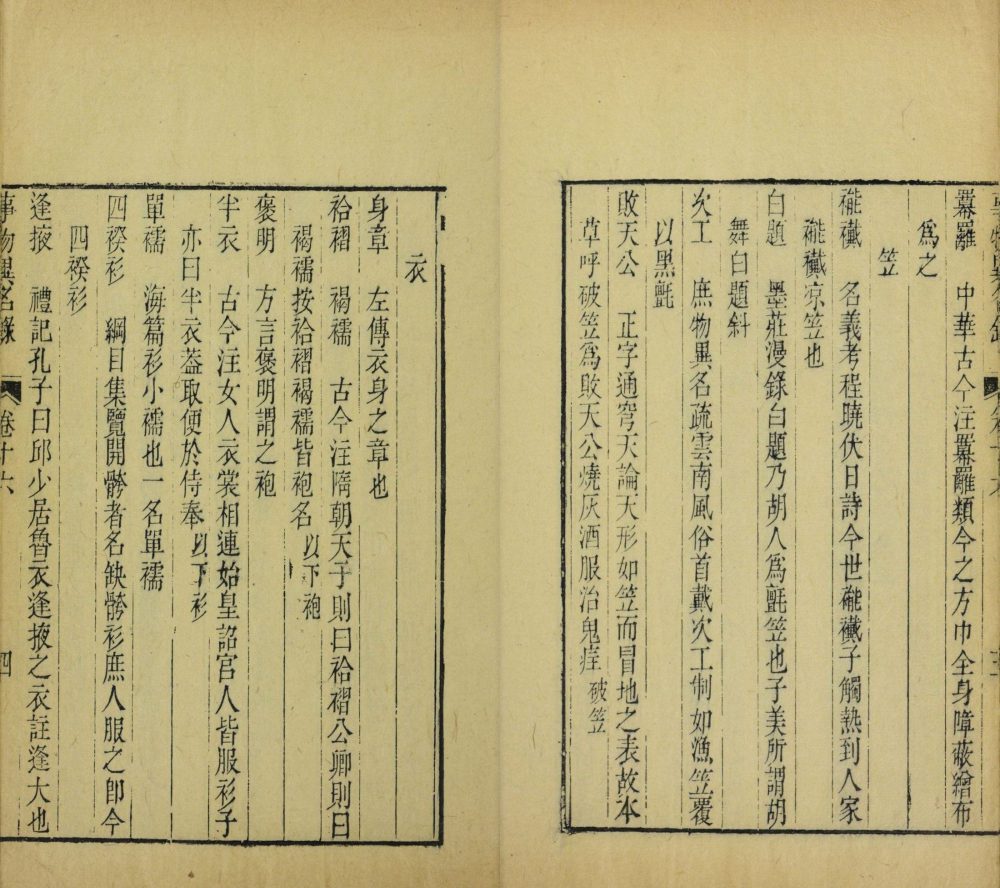 羃䍦　中華古今注羃䍦類今之方巾全身障蔽繒布
爲之
笠
褦襶　名義考程曉伏日詩今世褦襶子觸熱到人家
褦襶凉笠也
白題　墨莊漫錄白題乃胡人爲氈笠也子美所謂胡
舞白題斜
次工　庶物異名疏雲南風俗首戴次工制如漁笠覆
以黑氈
敗天公　正字通穹天論天形如笠而冒地之表故本
草呼破笠爲敗天公燒灰酒服治鬼疰　破笠
衣
身章　左傳衣身之章也
袷褶　褐襦　古今注隋朝天子則曰袷褶公卿則曰
褐襦按袷褶褐襦皆袍名　以下袍
褒明　方言褒明謂之袍
半衣　古今注女人衣裳相連始皇詔宫人皆服衫子
亦曰半衣葢取便於侍奉　以下衫
單襦　海篇衫小襦也一名單襦
四䙆衫　綱目集覽開骻者名缺骻衫庶人服之卽今
四䙆衫
逢掖　禮記孔子曰邱少居魯衣逢掖之衣註逢大也
事物異名錄　卷十六　四